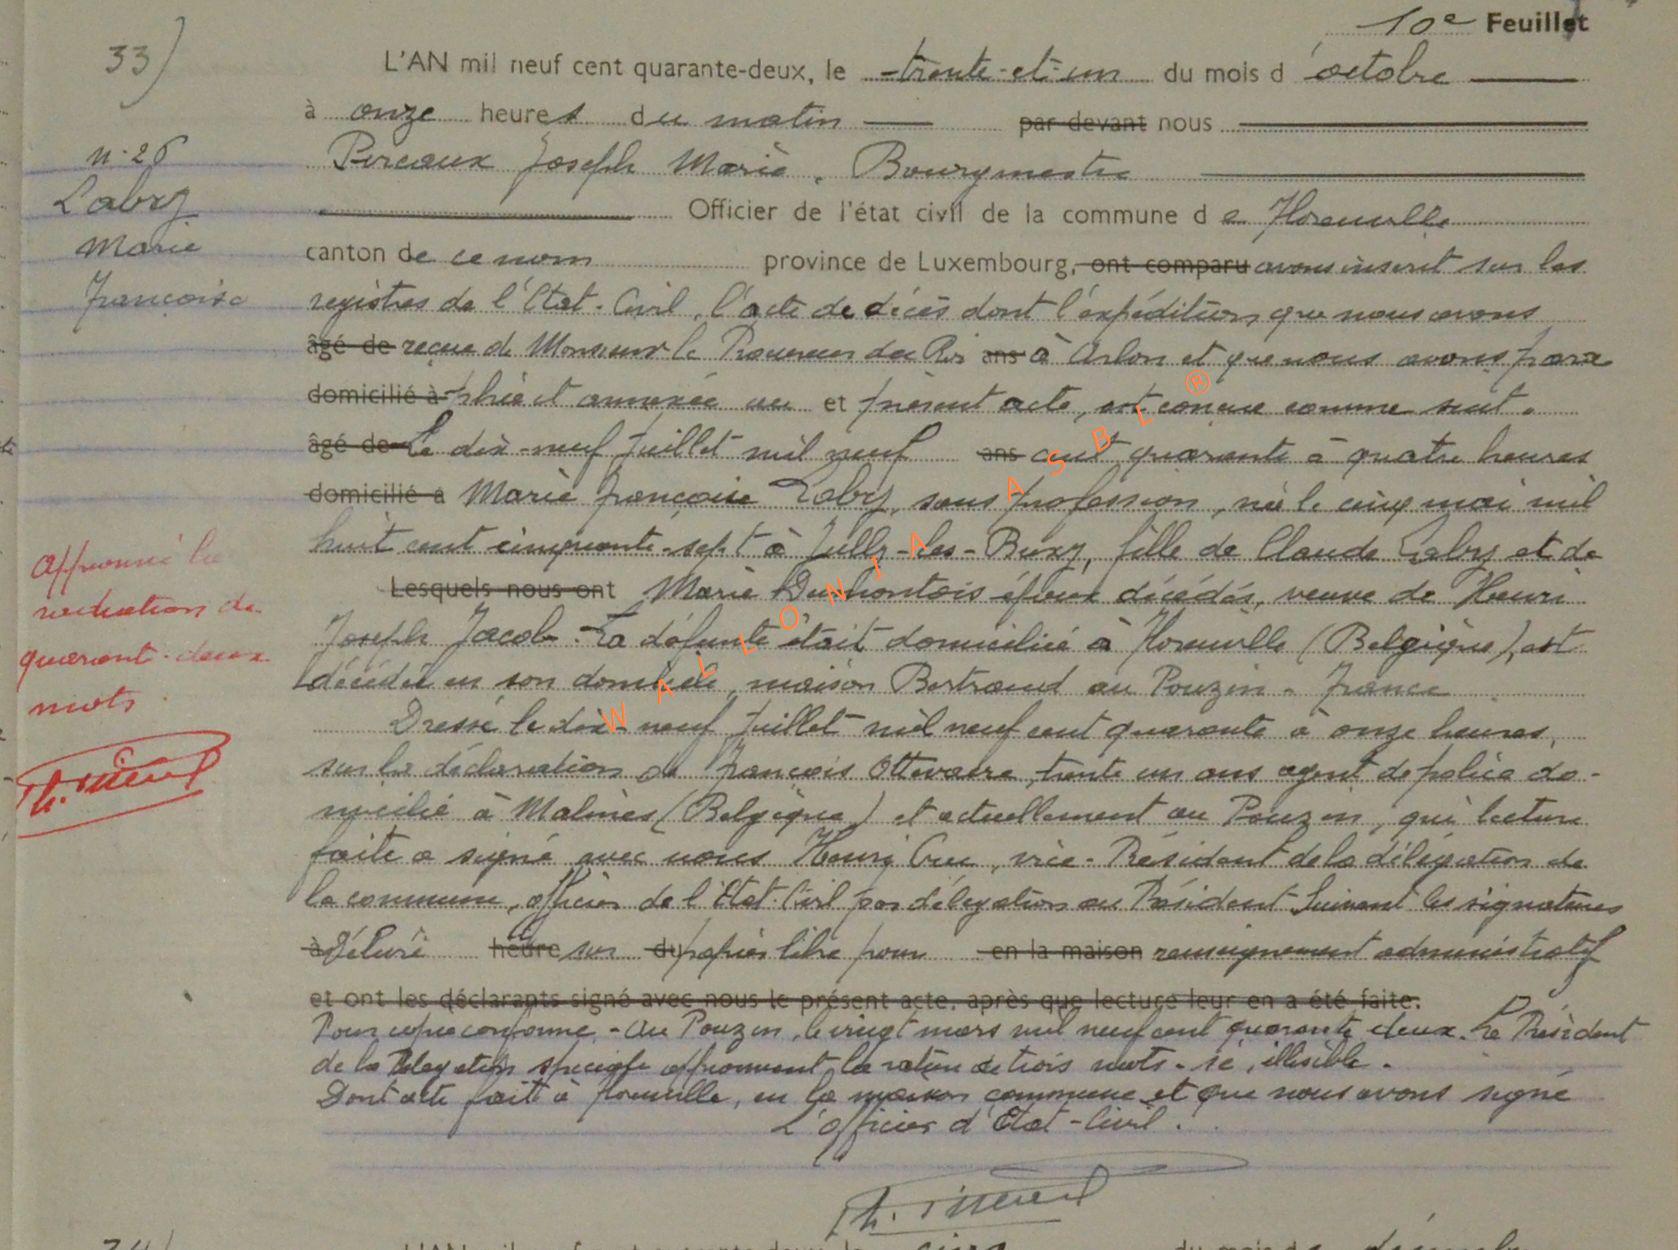 10e Feuillet
33)
L'AN mil neuf cent quarante-deux, le trente-et-un du mois d'octobre
à onze heures du matin par devant nous
n. 26
Labry
Marie
Françoise
Joseph Marie, Bourgmestre
Officier de l'état civil de la commune de Florenville
canton de ce nom province de Luxembourg, ont comparu avons inscrit sur les
registres de l'Etat-Civil, l'acte de décès dont l'expédition que nous avons
âgé de reçue de Monsieur le Procureur du Roi ans à Arlon et que nous avons para
domicilié à phée et annexée au et présent acte, est conçue comme suit.
âgé de Le dix-neuf juillet mil neuf ans cent quarante à quatre heures
domicilié à Marie Françoise Labry, sans profession, née le cinq mai mil
huit cent cinquante-sept à Jully-les-Buxy, fille de Claude Labry et de
Lesquels nous ont Marie époux décédés, veuve de Henri
Joseph Jacob. La défunte était domiciliée à Florenville (Belgique), est
décédée en son domicile, maison Bertrand au Pouzin - France
Dressé le dix-neuf juillet mil neuf cent quarante à onze heures,
sur la déclaration de François Ottevaere, trente un ans agent de police do-
micilié à Malines (Belgique) et actuellement au Pouzin, qui lecture
faite a signé avec nous Henri, vice-Président de la délégation de
la commune, officier de l'Etat-Civil par délégation du Président Suivent les signatures
à Délivré heure sur du papier libre pour en la maison renseignement administratif
et ont les déclarants signé avec nous le présent acte, après que lecture leur en a été faite.
Pour copie conforme - au Pouzin, le vingt mars mil neuf cent quarante deux. Le Président
de la Délégation spéciale approuvant la de trois mots. sé, illisible.
Dont acte fait à Florenville, en la maison commune et que nous avons signé
L'officier d'Etat-Civil.
approuvé la
radiation de
quarant-deux
mots
WALLONIA ASBL ®